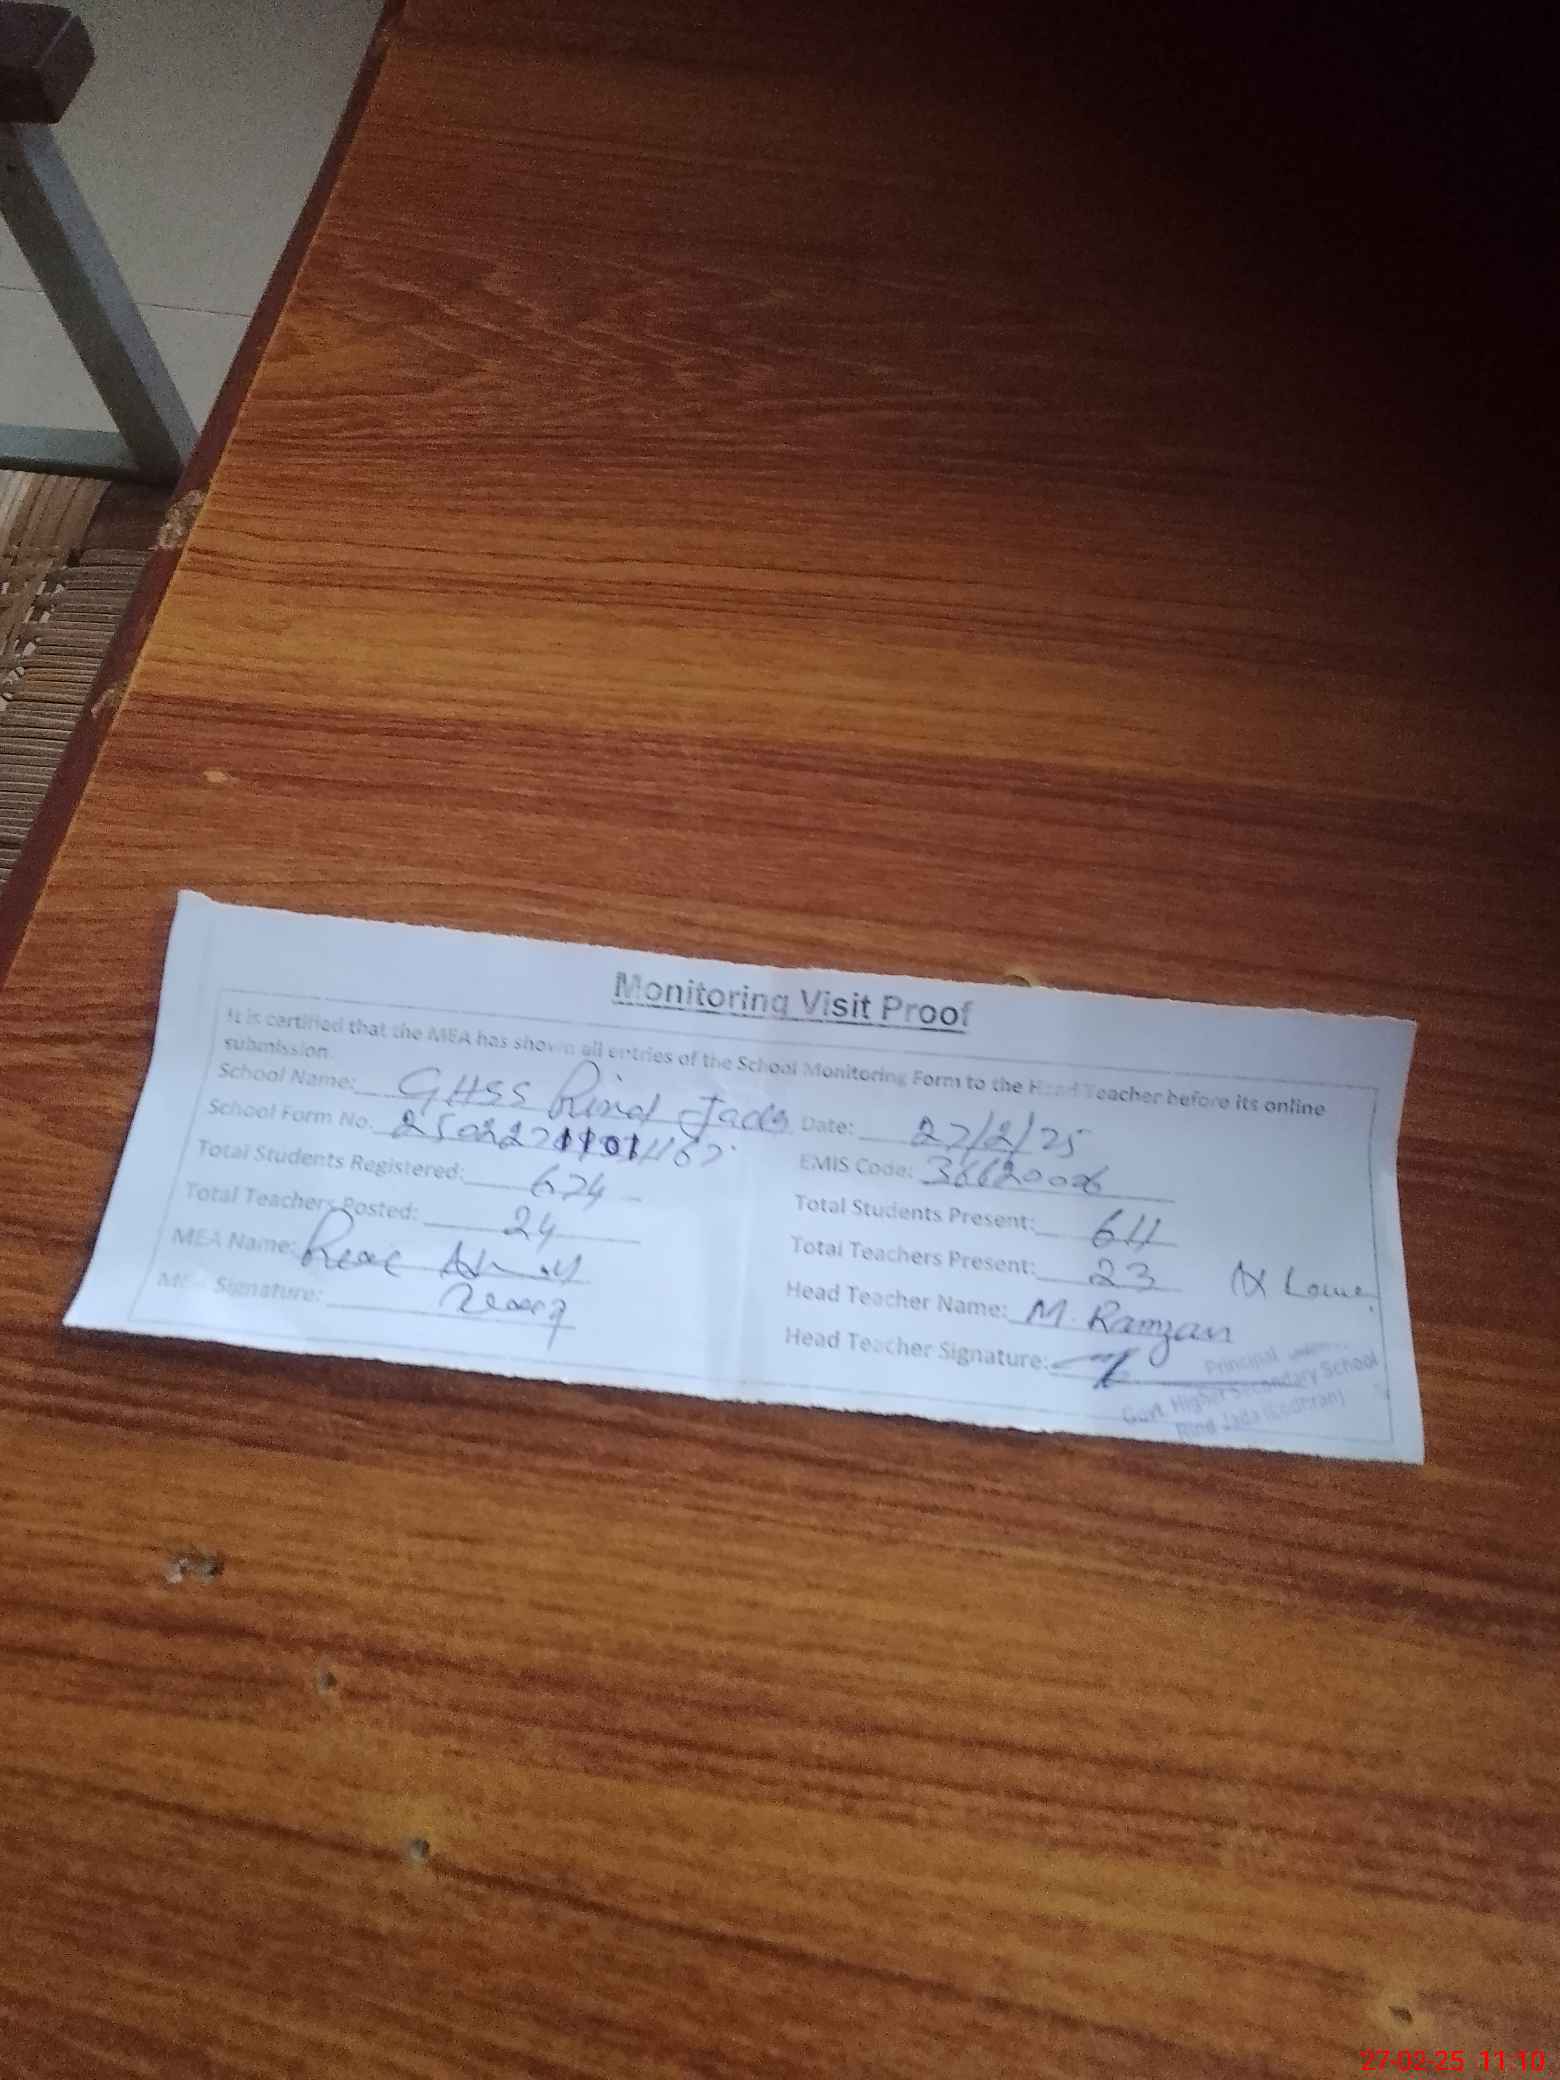 Monitoring Visit Proof
It is certified that the MEA has shown all entries of the School Monitoring Form to the Head Teacher before its online
submission.
School Name: GHSS Rind Jada Date: 27/2/25
School Form No. EMIS Code: 36620006
Total Students Registered: 674 Total Students Present: 611
Total Teachers Posted: 24 Total Teachers Present: 23
MEA Name: Head Teacher Name: M. Ramzan
MEA Signature: Head Teacher Signature:
Principal
Govt. Higher Secondary School
Rind Jada (Lodhran)
27-02-25 11:10